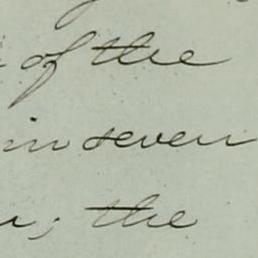 of the
in seven
; the